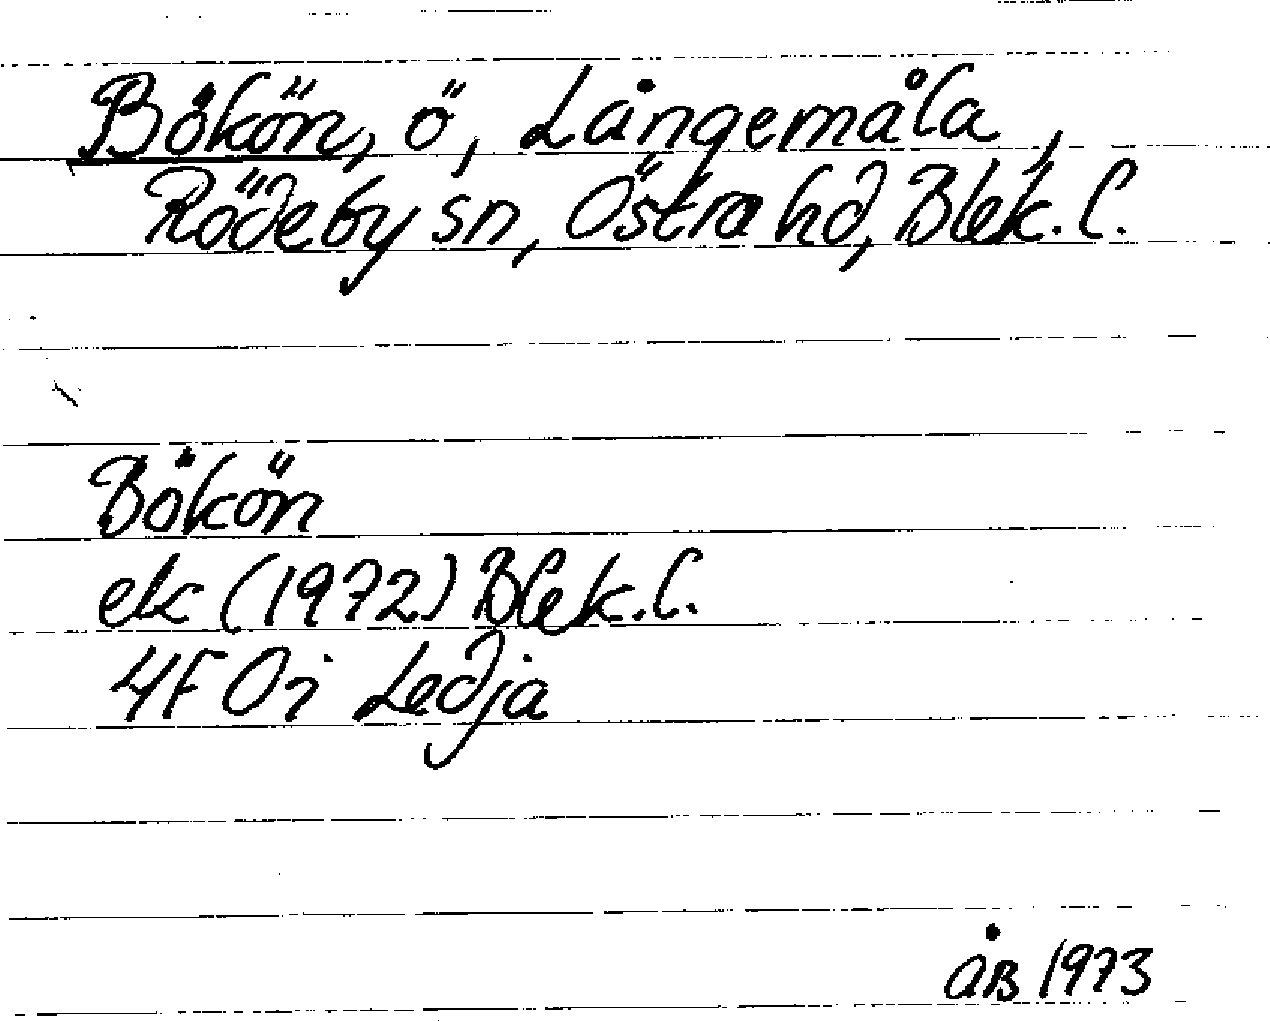 Bökön, ö, Långemåla,
Rödeby sn, Östra hd, Blek. l.
Bökön
ek (1972) Blek. l.
4F 0i Ledja
ÅB 1973